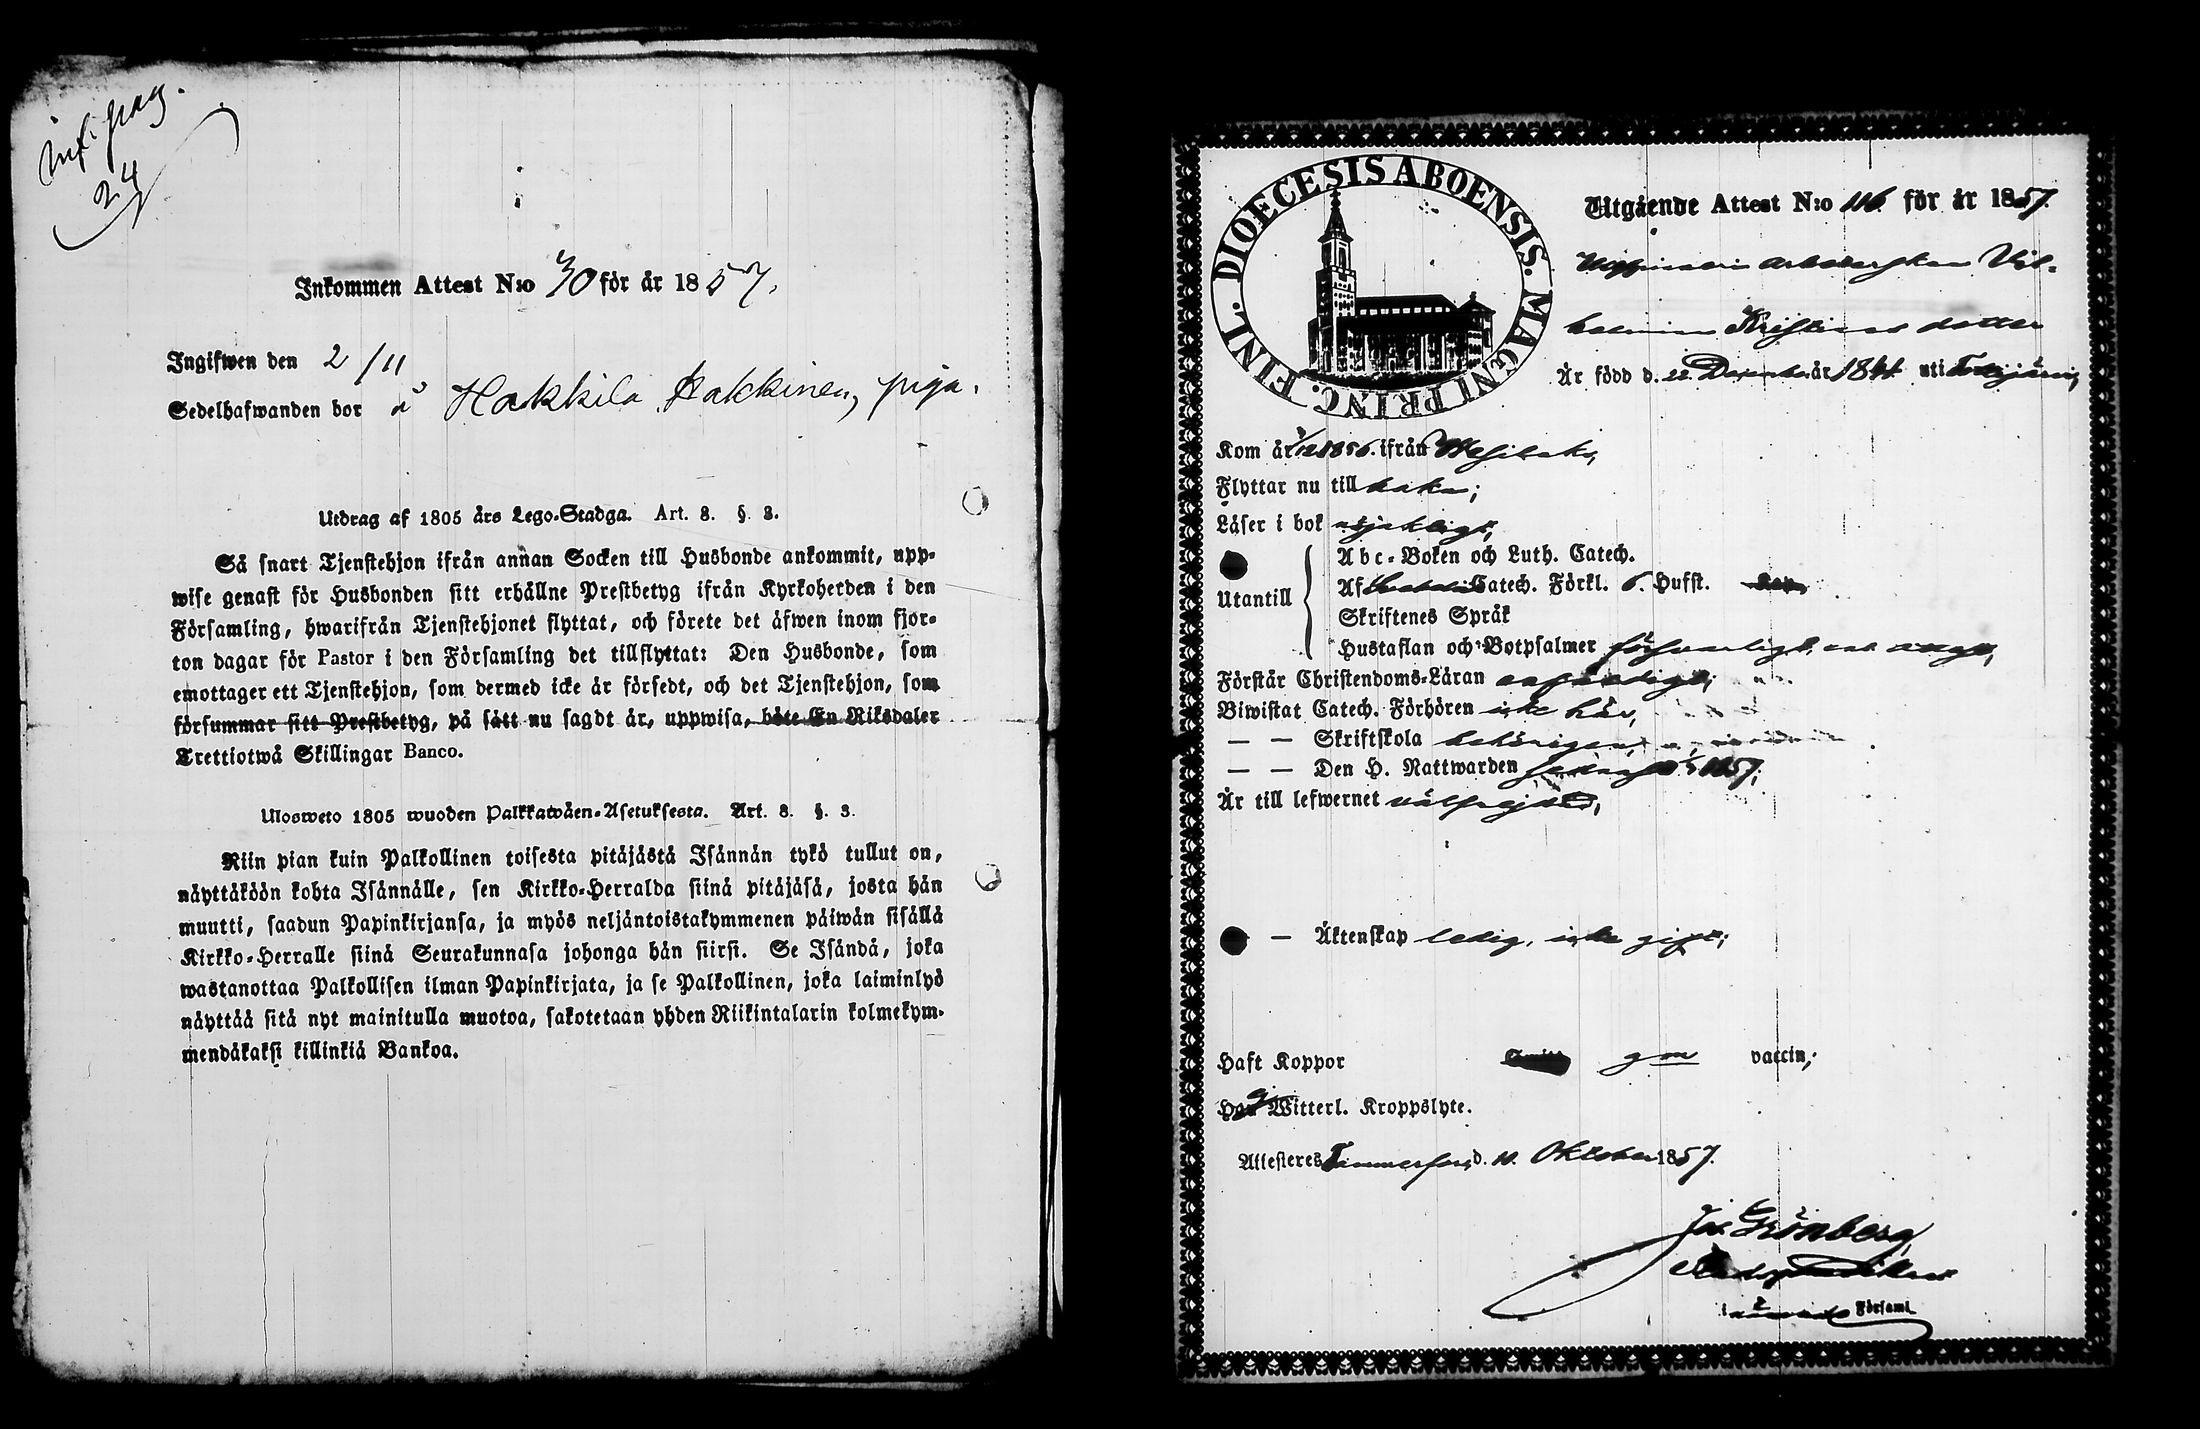 Infl. pag.
24
Inkommen Attest N:o 70 för år 1857.
Ingifwen den 2/11
Sedelhafwanden bor å Hakkila Hakkinen, piga.
Utdrag af 1805 års Lego-Stadga. Art. 8. §. 3.
Så snart Tjenstehjon ifrån annan Socken till Husbonde ankommit, upp-
wise genast för Husbonden sitt erhållne Prestbetyg ifrån Kyrkoherden i den
Församling, hwarifrån Tjenstehjonet flyttat, och förete det äfwen inom fjor-
ton dagar för Pastor i den Församling det tillflyttat: Den Husbonde, som
emottager ett Tjenstehjon, som dermed icke är försedt, och det Tjenstehjon, som
försummar sitt Prestbetyg, på sätt nu sagdt är, uppwisa, böte En Riksdaler
Trettiotwå Skillingar Banco.
Ulosweto 1805 wuoden Palkkawäen-Asetuksesta. Art. 8. §. 3.
Niin pian kuin Palkollinen toisesta pitäjästä Isännän tykö tullut on,
näyttäköön kohta Isännälle, sen Kirkko-Herralda siinä pitäjäsä, josta hän
muutti, saadun Papinkirjansa, ja myös neljäntoistakymmenen päiwän sisällä
Kirkko-Herralle siinä Seurakunnasa johonga hän siirsi. Se Isändä, joka
wastanottaa Palkollisen ilman Papinkirjata, ja se Palkollinen, joka laiminlyö
näyttää sitä nyt mainitulla muotoa, sakotetaan yhden Riikintalarin kolmekym-
mendäkaksi killinkiä Bankoa.
DIOECESIS ABOENSIS. MAGNI PRINC. FINL.
Utgående Attest N:o 116 för år 1857.
arbeterskan Vil-
helmina Kristians dotter
Är född d. 22 December år 1841 uti
Kom år 1856. ifrån Wesilaks,
Flyttar nu till baka;
Läser i bok
Abc-Boken och Luth. Catech.
Utantill Af Catech. Förkl. 6. Hufst.
Skriftenes Språk
Hustaflan och Botpsalmer försvarligt,
Förstår Christendoms-Läran
Biwistat Catech. Förhören icke här,
— — Skriftskola behörigen,
— — Den H. Nattwarden 1857;
Är till lefwernet välfrejdad,
— Äktenskap ledig, icke gift;
Haft Koppor gm vaccin;
Witterl. Kroppslyte.
Attesteres Tammerfors d. 10. Oktober 1857.
Jak Grönberg,
i Församl.